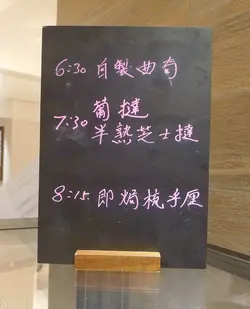 6:30 自製曲奇
葡撻
7:30
半熟芝士撻
8:15 即焗梳乎厘